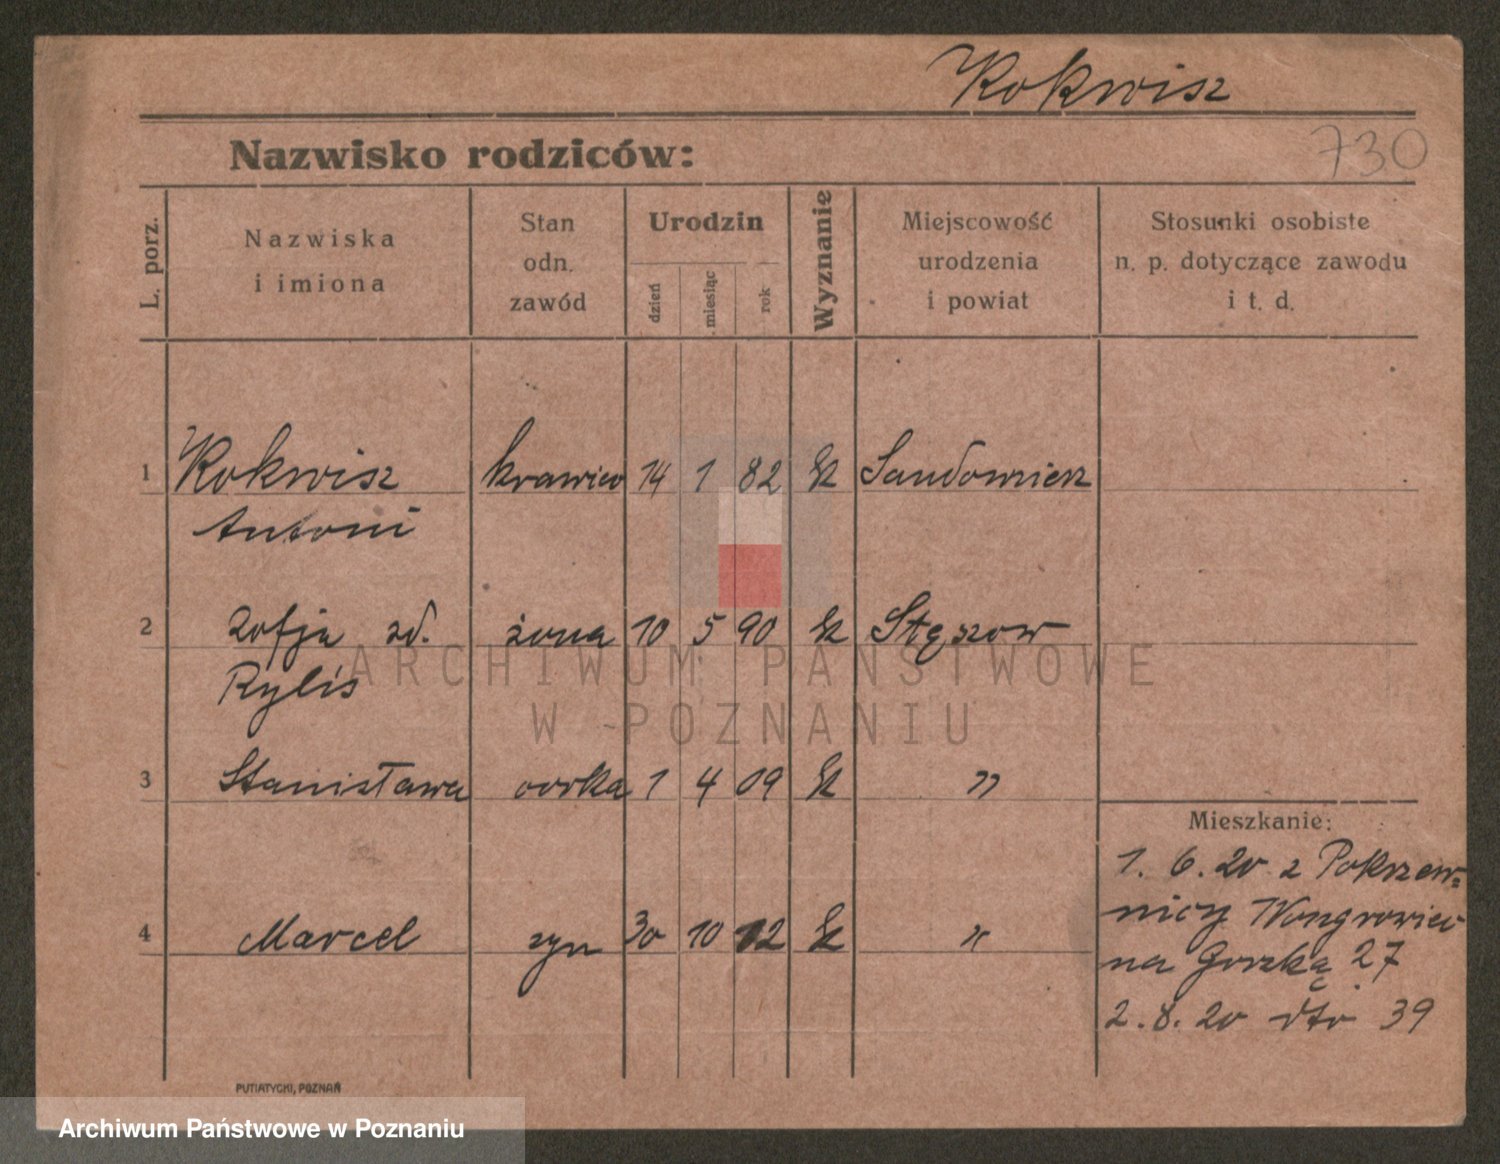 Rokwisz
730
Nazwisko rodziców:
L. porz.
Nazwiska
i imiona
Stan
odn.
zawód
Urodzin
dzień
miesiąc
rok
Wyznanie
Miejscowość
urodzenia
i powiat
Stosunki osobiste
n. p. dotyczące zawodu
i t. d.
1 Rokwisz krawiec 14 1 82 Sandomierz
Antoni
2 Zofja zd. żona 10 5 90
Rylis
3 Stanisława córka 1 4 09 "
4 Marcel syn 30 10 12 "
Mieszkanie:
1. 6. 20 z Pokrzew=
nicy Wongrowiec
na Gorzką 27
2. 8. 20 dto 39
PUTIATYCKI, POZNAŃ
ARCHIWUM PAŃSTWOWE
W POZNANIU
Archiwum Państwowe w Poznaniu